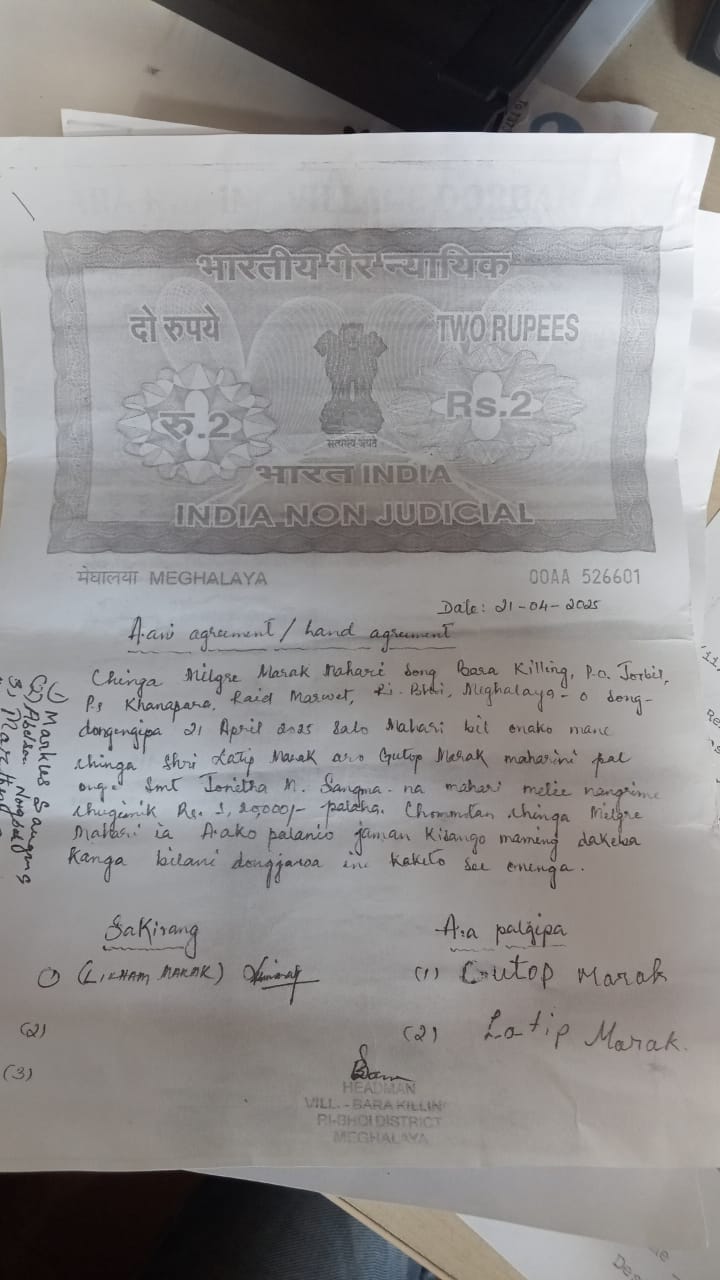 भारतीय गैर न्यायिक
दो रुपये
TWO RUPEES
रु.2
Rs.2
सत्यमेव जयते
भारत INDIA
INDIA NON JUDICIAL
मेघालया MEGHALAYA
00AA 526601
Date: 21-04-2025
A.ani agreement / Land agreement
Chinga Milgre Marak Mahari song Bara Killing, P.O. Jorbil,
Ps Khanapara, Raid Marwet, Ri-Bhoi, Meghalaya-o dong-
dongengipa 21 April 2025 salo Mahari bil onako mane
chinga Shri Latip Marak aro Gutop Marak maharini pal
onge Smt Jonitha M. Sangma-na mahari melie nangrime
chugimik Rs. 1,20,000/- palaha. Chinga Milgre
Mahari ia A.ako palanio jaman Kisango maming dakeba
Kanga bilani dongjanoa ine kakket see onenga.
Sakirang
(1) (LIKHAM MARAK)
(2)
(3)
A.a palgipa
(1) Gutop Marak
(2) Latip Marak.
HEADMAN
VILL.-BARA KILLING
RI-BHOI DISTRICT
MEGHALAYA
(1) Markus Sangma
(2) Abelson Nongbah
3)